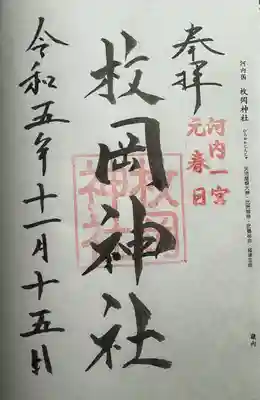 河内国 枚岡神社
奉拝
河内一宮
元春日
枚岡神社
枚岡
神社
令和五年十一月十五日
畿内